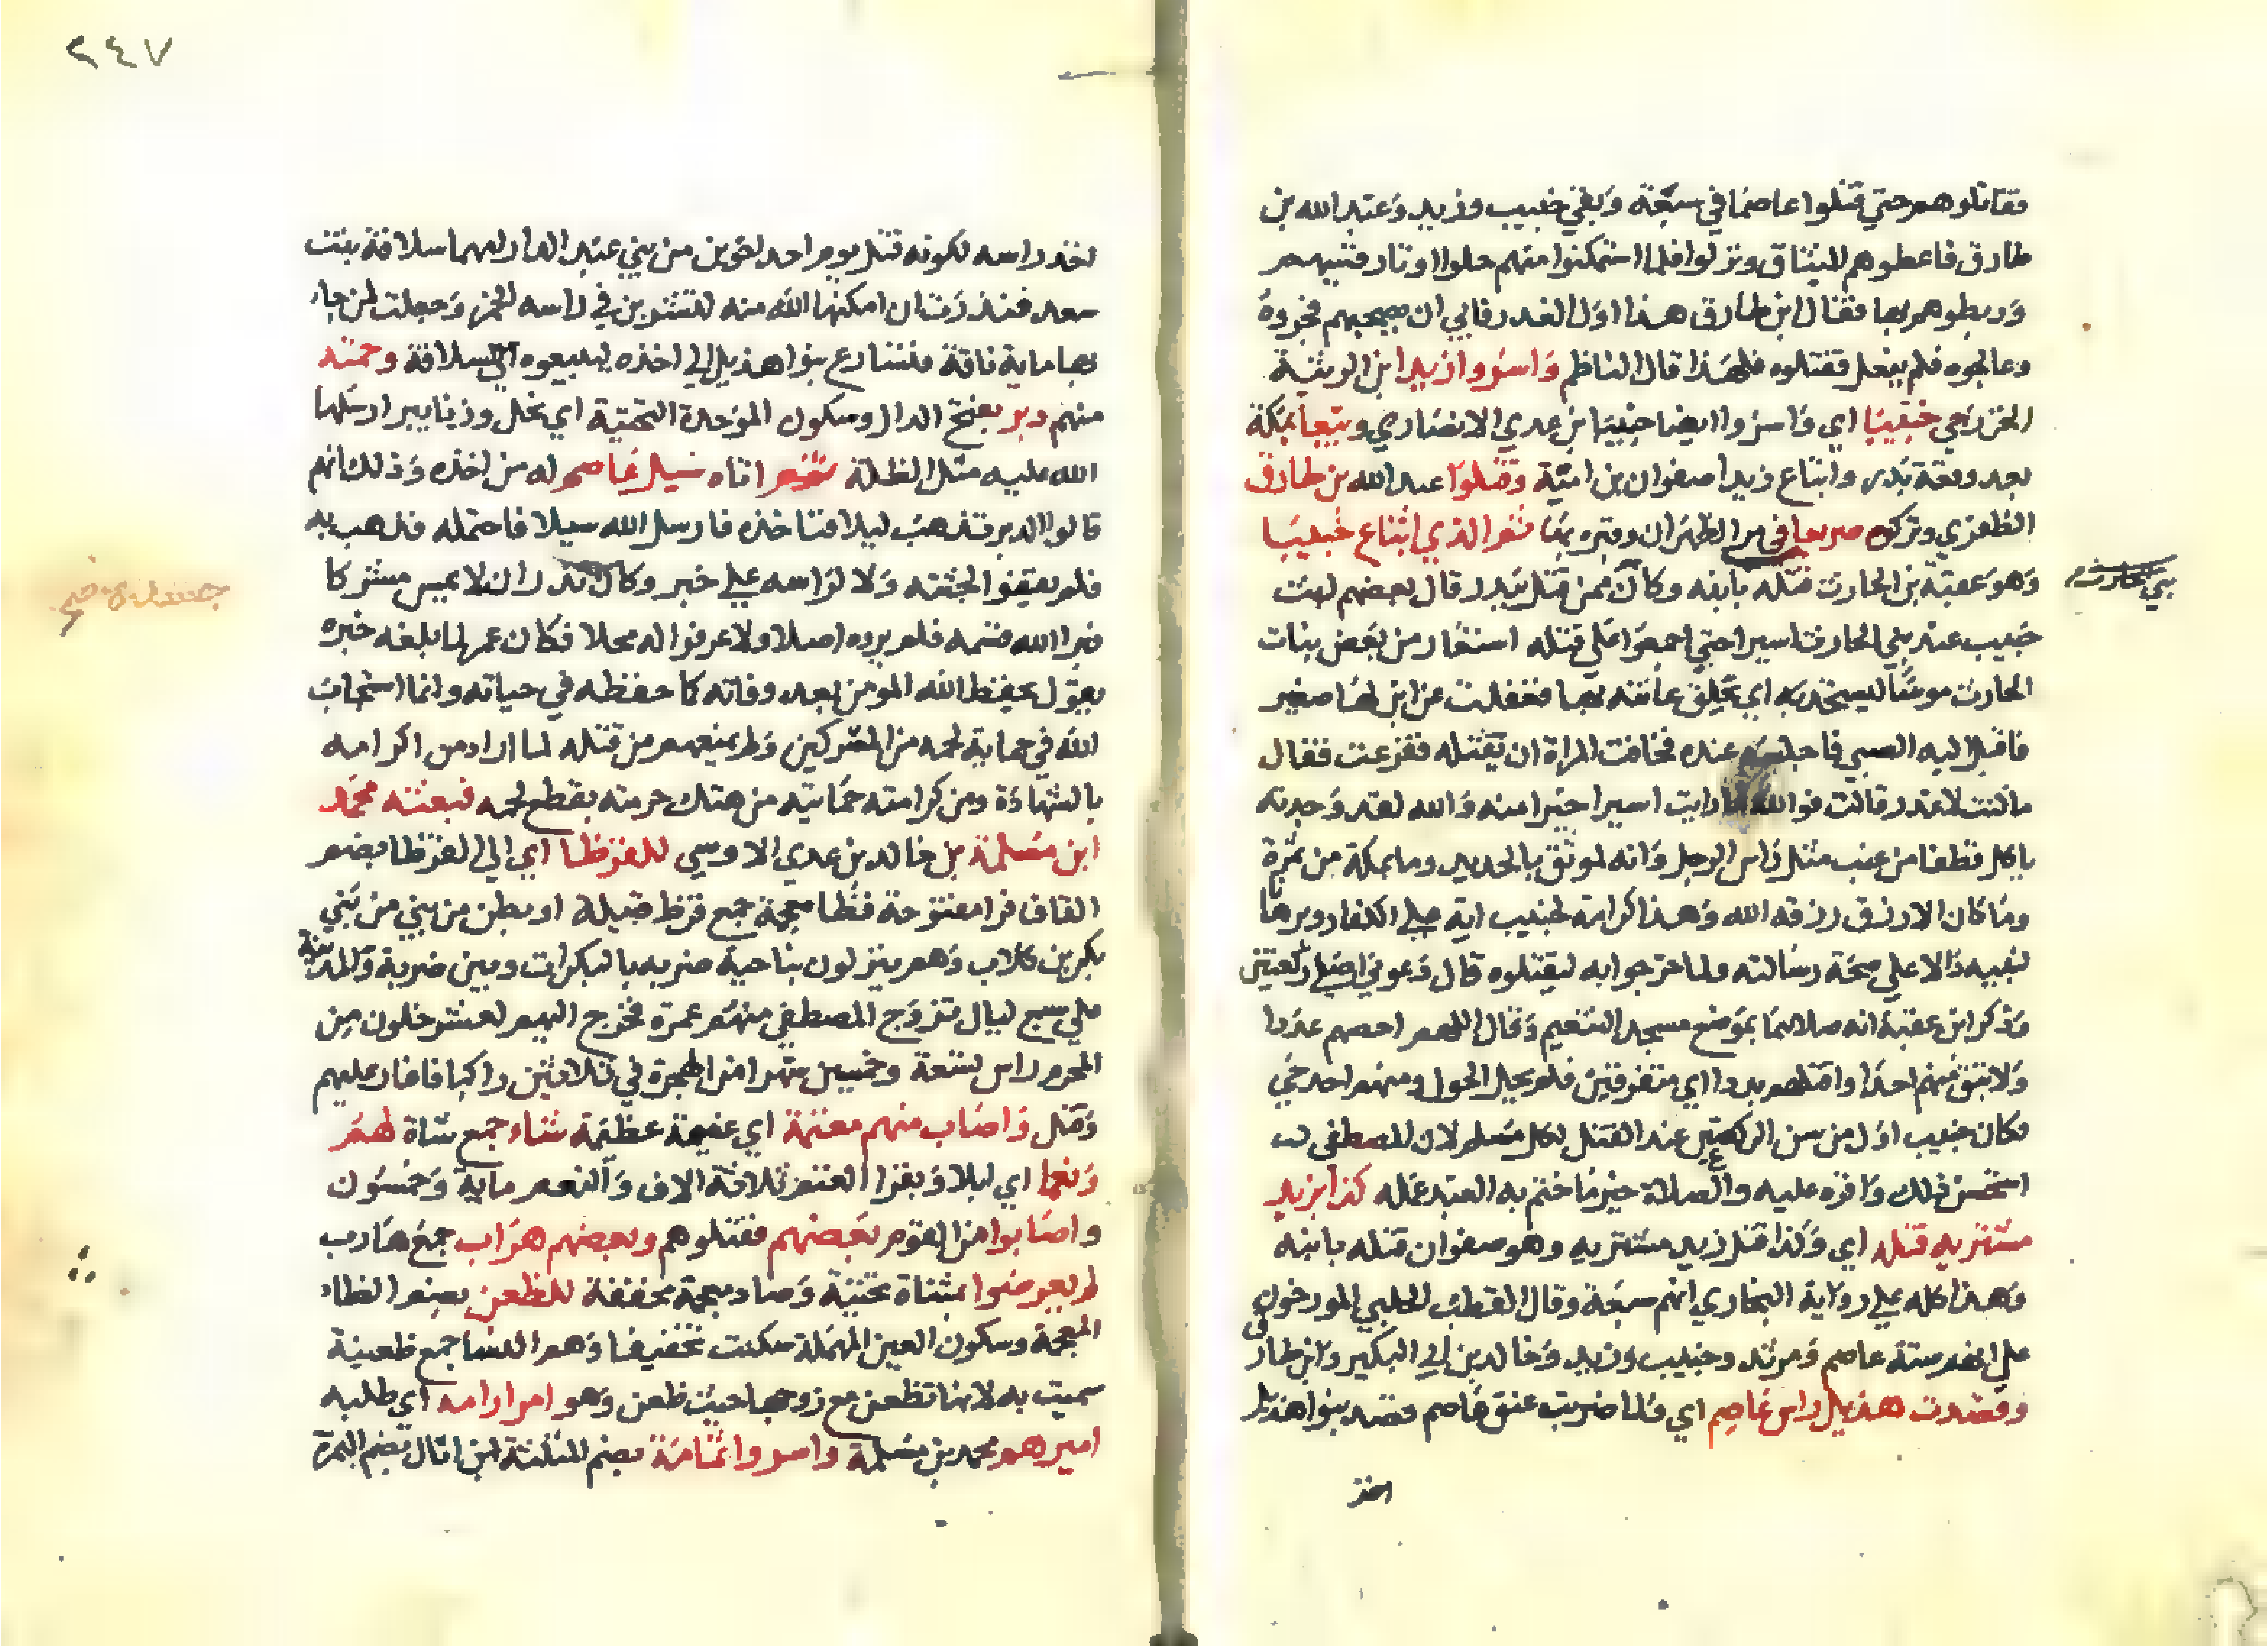 فقاتلوهم حتي قتلوا عاصما في سبعة وبقي خبيب وزيد وعبد الله بن
طارق فاعطوهم الميثاق ونزلوا فلما استمكنوا منهم حلوا اوتار قسيهم
وربطوهم بها فقال ابن طارق هذا اول الغدر فابي ان يصحبهم فجروه
وعالجوه فلم يفعل فقتلوه فلهذا قال الناظم واسروا زيدا ابن الدثنة
الخزرجي خبيبا اي واسروا ايضا خبيبا بن عدي الانصاري وبيعا بمكة
بعد وقعة بدر وابتاع زيدا صفوان بن امية وقتلوا عبد الله بن طارق
الظفري وتركوه صريعا في مر الظهران وقبره بها ثم الذي ابتاع خبيبا
وهو عقبة بن الحارث قتله بابنه وكان ممن قتل ببدر قال بعضهم لبث
بني الحارث
خبيب عند بني الحارث اسيرا حتي اجمعوا علي قتله استعار من بعض بنات
الحارث موسا ليستحد به اي يحلق عانته بها فغفلت عن ابن لها صغير
فاقبل اليه الصبي فاجلسه عنده فخافت المراة ان يقتله ففزعت فقال
ما كنت لاغدر قالت فوالله ما رايت اسيرا خيرا منه والله لقد وجدته
ياكل قطفا من عنب مثل راس الرجل وانه لموثق بالحديد وما بمكة من ثمرة
وما كان الا رزق رزقه الله وهذا كرامة لخبيب اية علي الكفار وبرهانا
لنبيه دالا علي صحة رسالته ولما خرجوا به ليقتلوه قال دعوني اصلي ركعتين
وذكر ابن عقبة انه صلاهما بموضع مسجد التنعيم وقال اللهم احصهم عددا
ولا تبق منهم احدا واقتلهم بددا اي متفرقين فلم يحل الحول ومنهم احد حي
فكان خبيب اول من سن الركعتين عند القتل لكل مسلم لان المصطفي
استحسن ذلك واقره عليه والصلاة خير ما ختم به العبد عمله كذا بزيد
مشتريه قتله اي وكذا قتل زيد مشتريه وهو صفوان قتله بابنه
وهذا كله علي رواية البخاري انهم سبعة وقال القطب الحلبي المورخون
علي انهم ستة عاصم ومرثد وخبيب وزيد وخالد بن ابي البكير وابن طارق
وقصدت هذيل راس عاصم اي ولما ضربت عنق عاصم قصد بنوا هذيل
اخذ
٢٤٧
اخذ راسه لكونه قتل يوم احد اخوين من بني عبد الدار امهما سلافة بنت
سعد فنذرت ان امكنها الله منه لتشربن في راسه الخمر وجعلت لمن جاء
بها ماية ناقة فتسارع بنوا هذيل الي اخذه ليبيعوه الي سلافة وحمته
منهم دبر بفتح الدال وسكون الموحدة التحتية اي نحل وزنابير ارسلها
الله عليه مثل الظلة ثم اتاه سيل عاصم له من اخذه وذلك انهم
قالوا الدبر تذهب ليلا فناخذه فارسل الله سيلا فاحتمله فذهب به
فلم يقفوا لجثته ولا لراسه علي خبر وكان نذر ان لا يمس مشركا
فبر الله قسمه فلم يروه اصلا ولا عرفوا له محلا فكان عمر لما بلغه خبره
يقول يحفظ الله المومن بعد وفاته كما حفظه في حياته وانما استجاب
الله في حماية لحمه من المشركين ولم يمنعهم من قتله لما اراد من اكرامه
بالشهادة ومن كرامته حمايته من هتك حرمته بقطع لحمه فبعثته محمد
ابن مسلمة بن خالد بن عدي الاوسي للقرظا اي الي القرظا بضم
القاف فرا مفتوحة فظا معجمة جمع قرظ قبيلة او بطن من بني من بني
بكر بن كلاب وهم ينزلون بناحية ضريه بالبكرات وبين ضرية والمدينة
علي سبع ليال تزوج المصطفي منهم عمرة فخرج اليهم لعشر خلون من
المحرم راس تسعة وخمسين شهرا من الهجرة في ثلاثين راكبا فاغار عليهم
وقتل واصاب منهم مغنمة اي غنيمة عظيمة شاء جمع شاة لهم
ونعما اي ابلا وبقرا الغنم ثلاثة الاف والنعم ماية وخمسون
واصابوا من القوم بعضهم فقتلوهم وبعضهم هراب جمع هارب
لم يعرضوا بمثناة تحتية وضاد معجمة مخففة للظعن بضم الظاء
المعجمة وسكون العين المهملة سكنت تخفيفا وهم النسا جمع ظعينة
سميت به لانها تظعن مع زوجها حيث ظعن وهو امر ارامه اي طلبه
اميرهم محمد بن مسلمة واسروا ثمامة بضم المثلثة ابن اثال بضم الهمزة